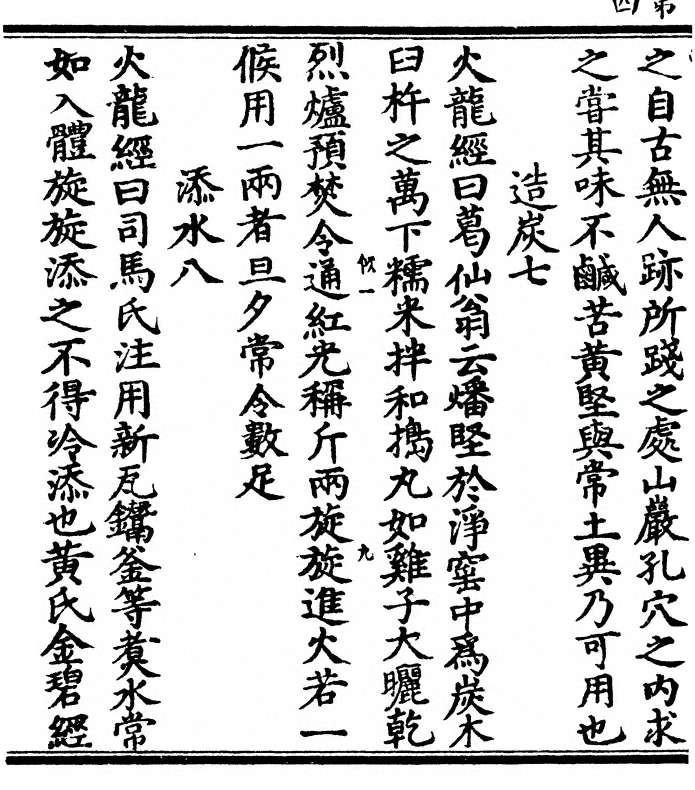 之自古無人跡所踐之處山巖孔穴之內求
之嘗其味不鹹苦黃堅與常土異乃可用也
造炭七
火龍經曰葛仙翁云燔堅於淨窯中為炭木
臼杵之萬下糯米拌和搗丸如雞子大曬乾
烈爐預焚令通紅光稱斤兩旋旋進火若一
候用一兩者旦夕常令數足
添水八
火龍經曰司馬氏注用新瓦鐺釜等煑水常
如入體旋旋添之不得冷添也黃氏金碧經